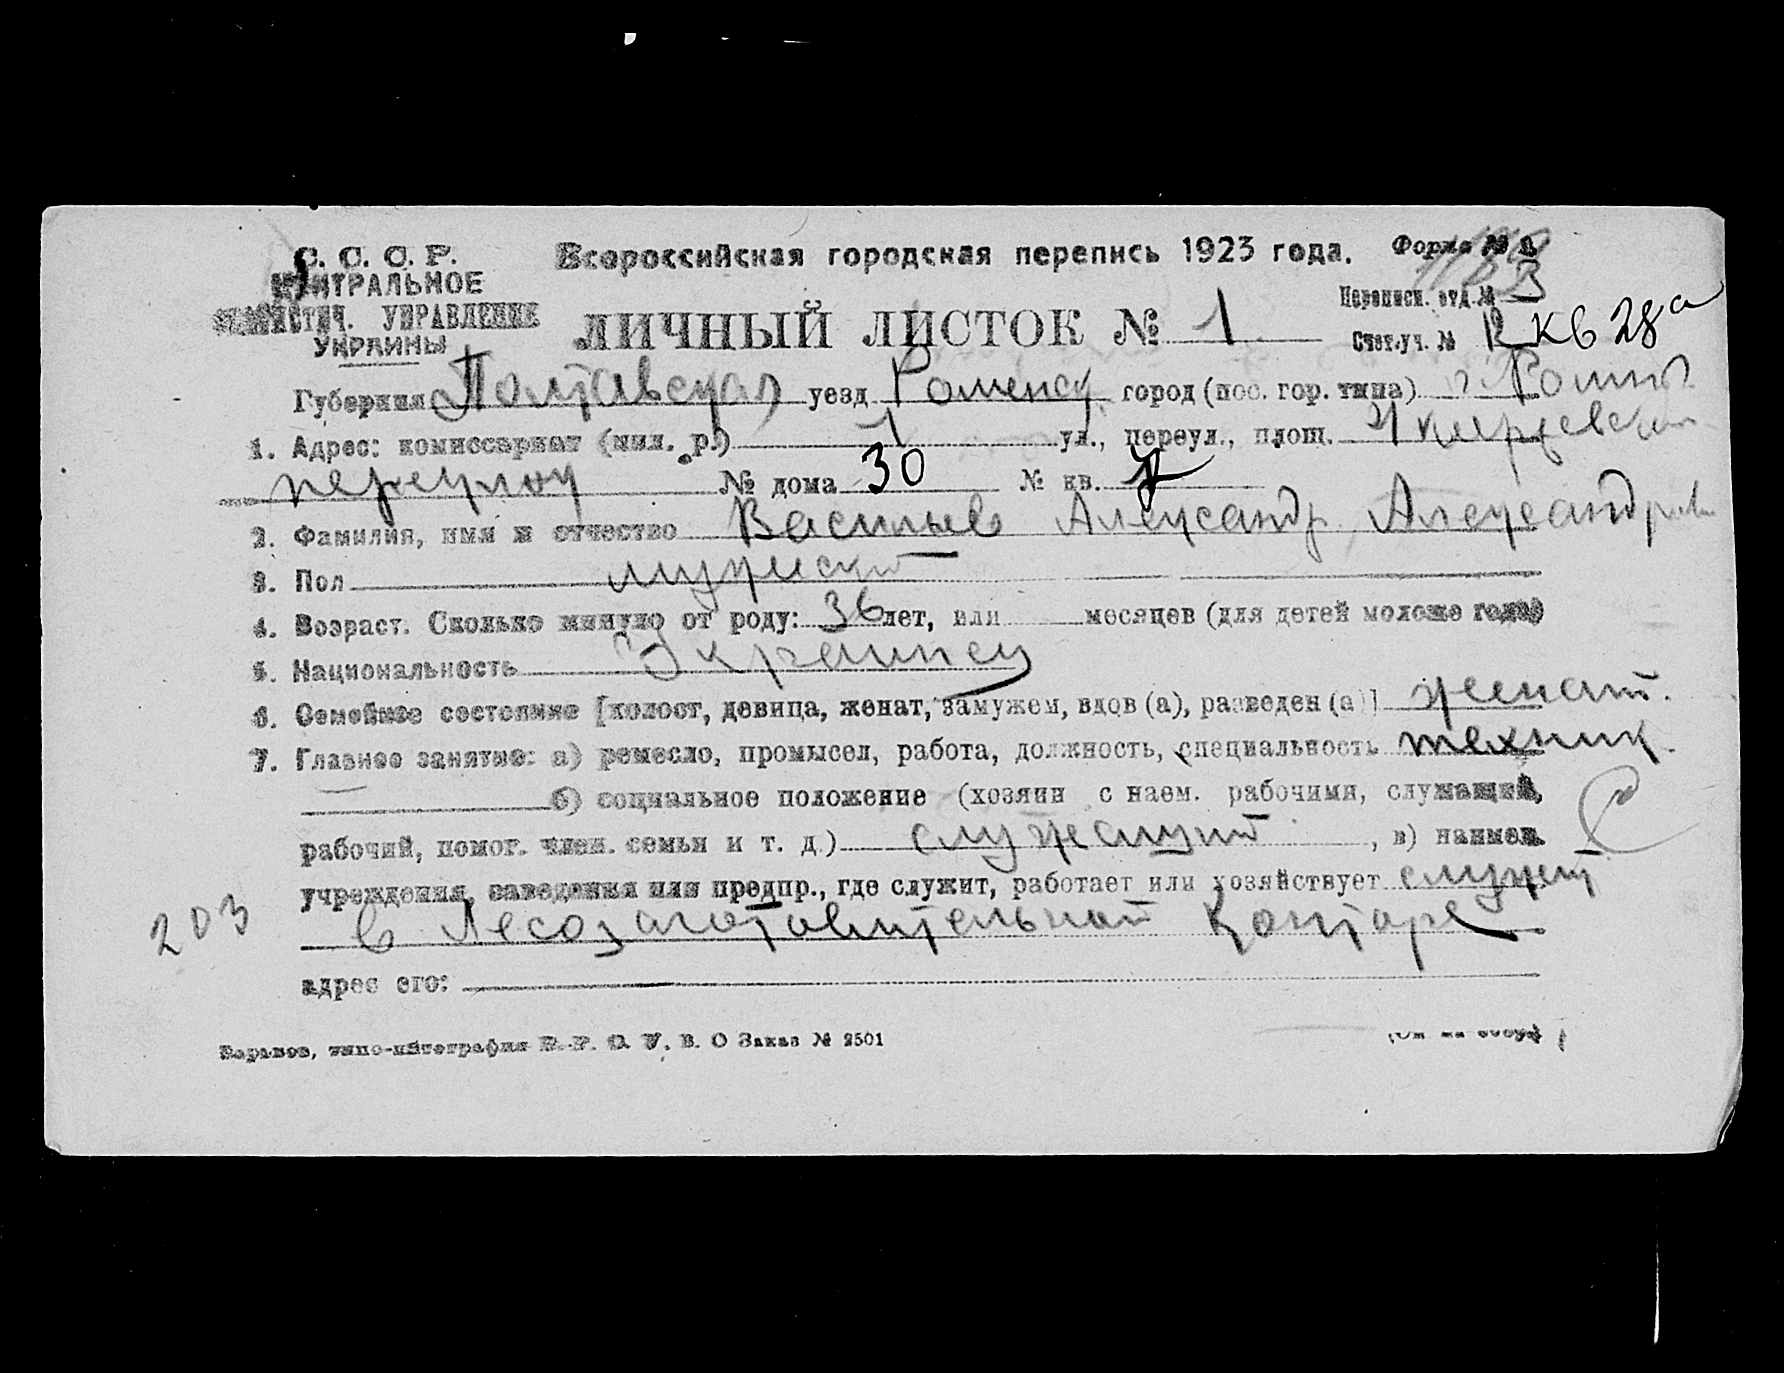 С. С. С. Р. Всероссийская городская перепись 1923 года. Форма №
ЦЕНТРАЛЬНОЕ
СТАТИСТИЧ. УПРАВЛЕНИЕ
УКРАИНЫ
Переписн. отд. № 3
ЛИЧНЫЙ ЛИСТОК № 1
Счет. уч. № 12 кв 28а
Губерния Полтавская уезд Роменск город (пос. гор. типа) г. Ромны
1. Адрес: комиссариат (мил. р.) 1 ул., переул., площ.
переулок № дома 30 № кв.
2. Фамилия, имя и отчество Васильев Александр Александров
3. Пол мужской
4. Возраст. Сколько минуло от роду: 36 лет, или месяцев (для детей моложе года)
5. Национальность Украинец
6. Семейное состояние [холост, девица, женат, замужем, вдов (а), разведен (а)] женат.
7. Главное занятие: а) ремесло, промысел, работа, должность, специальность техник.
б) социальное положение (хозяин с наем. рабочими, служащий,
рабочий, помог. член. семьи и т. д.) служащий, в) наимен.
учреждения, заведения или предпр., где служит, работает или хозяйствует служит
203 в Лесозаготовительной Конторе
адрес его:
Харьков, типо-литография В. О Заказ № 2501